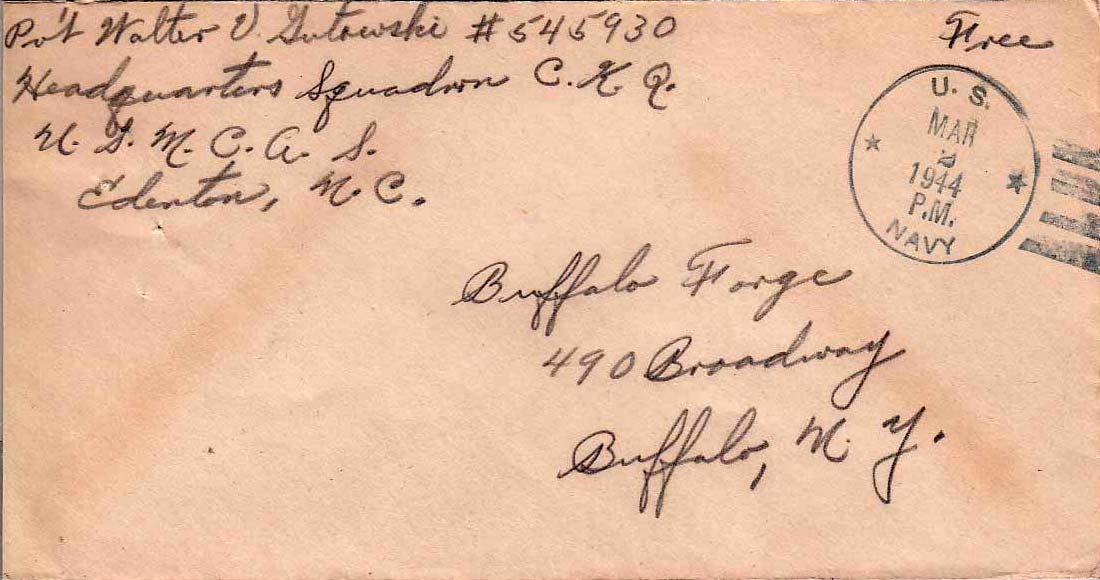 Pvt Walter V. Gutowski #545930
Headquarters Squadron C. K. R.
U. S. M. C. A. S.
Edenton, N. C.
Free
U. S.
MAR
2
1944
P.M.
NAVY
Buffalo Forge
490 Broadway
Buffalo, N. Y.